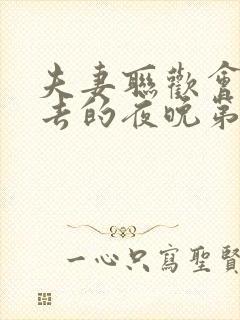 夫妻聯歡會
去的夜晚第
一心只寫聖賢